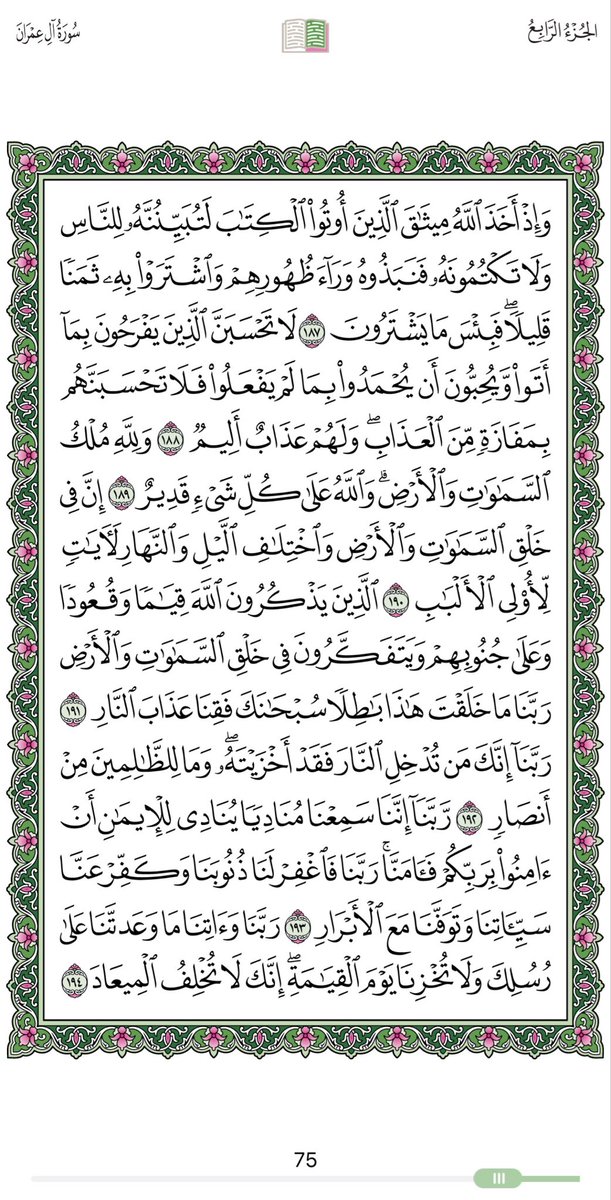 الجُزْءُ الرَّابِعُ
سُورَةُ آلِ عِمْرَانَ
وَإِذْ أَخَذَ ٱللَّهُ مِيثَٰقَ ٱلَّذِينَ أُوتُوا۟ ٱلْكِتَٰبَ لَتُبَيِّنُنَّهُۥ لِلنَّاسِ
وَلَا تَكْتُمُونَهُۥ فَنَبَذُوهُ وَرَآءَ ظُهُورِهِمْ وَٱشْتَرَوْا۟ بِهِۦ ثَمَنًا
قَلِيلًا ۖ فَبِئْسَ مَا يَشْتَرُونَ ١٨٧ لَا تَحْسَبَنَّ ٱلَّذِينَ يَفْرَحُونَ بِمَآ
أَتَوا۟ وَّيُحِبُّونَ أَن يُحْمَدُوا۟ بِمَا لَمْ يَفْعَلُوا۟ فَلَا تَحْسَبَنَّهُم
بِمَفَازَةٍ مِّنَ ٱلْعَذَابِ ۖ وَلَهُمْ عَذَابٌ أَلِيمٌ ١٨٨ وَلِلَّهِ مُلْكُ
ٱلسَّمَٰوَٰتِ وَٱلْأَرْضِ ۗ وَٱللَّهُ عَلَىٰ كُلِّ شَىْءٍ قَدِيرٌ ١٨٩ إِنَّ فِى
خَلْقِ ٱلسَّمَٰوَٰتِ وَٱلْأَرْضِ وَٱخْتِلَٰفِ ٱلَّيْلِ وَٱلنَّهَارِ لَءَايَٰتٍ
لِّأُو۟لِى ٱلْأَلْبَٰبِ ١٩٠ ٱلَّذِينَ يَذْكُرُونَ ٱللَّهَ قِيَٰمًا وَقُعُودًا
وَعَلَىٰ جُنُوبِهِمْ وَيَتَفَكَّرُونَ فِى خَلْقِ ٱلسَّمَٰوَٰتِ وَٱلْأَرْضِ
رَبَّنَا مَا خَلَقْتَ هَٰذَا بَٰطِلًا سُبْحَٰنَكَ فَقِنَا عَذَابَ ٱلنَّارِ ١٩١
رَبَّنَآ إِنَّكَ مَن تُدْخِلِ ٱلنَّارَ فَقَدْ أَخْزَيْتَهُۥ ۖ وَمَا لِلظَّٰلِمِينَ مِنْ
أَنصَارٍ ١٩٢ رَّبَّنَآ إِنَّنَا سَمِعْنَا مُنَادِيًا يُنَادِى لِلْإِيمَٰنِ أَنْ
ءَامِنُوا۟ بِرَبِّكُمْ فَـَٔامَنَّا ۚ رَبَّنَا فَٱغْفِرْ لَنَا ذُنُوبَنَا وَكَفِّرْ عَنَّا
سَيِّـَٔاتِنَا وَتَوَفَّنَا مَعَ ٱلْأَبْرَارِ ١٩٣ رَبَّنَا وَءَاتِنَا مَا وَعَدتَّنَا عَلَىٰ
رُسُلِكَ وَلَا تُخْزِنَا يَوْمَ ٱلْقِيَٰمَةِ ۗ إِنَّكَ لَا تُخْلِفُ ٱلْمِيعَادَ ١٩٤
75